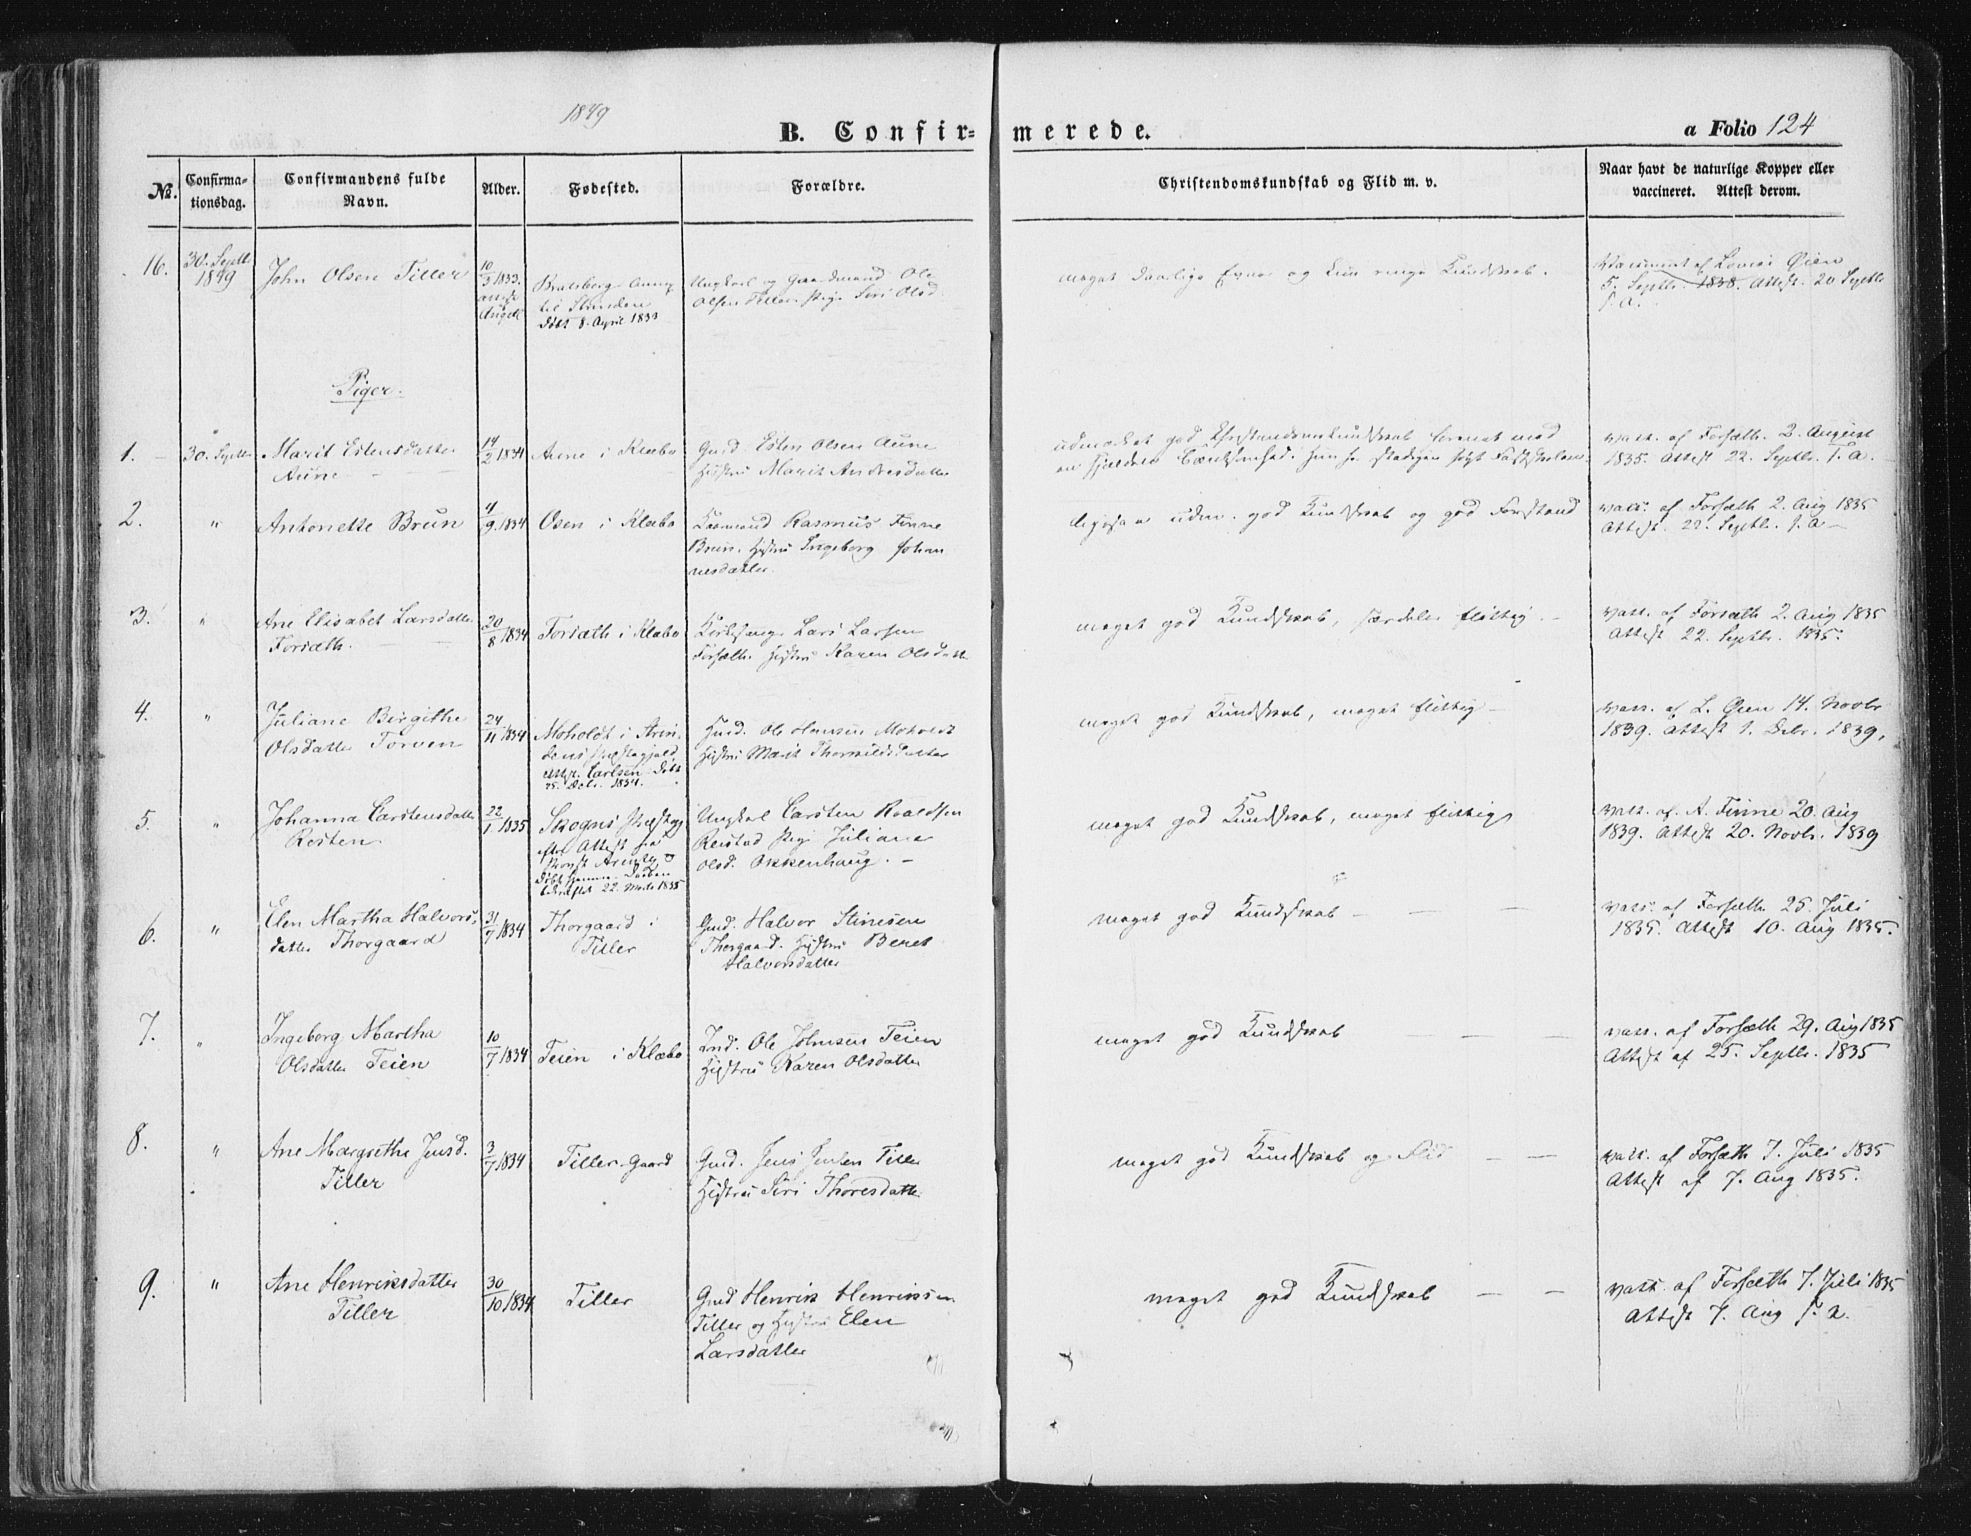 1849
B. Confir=merede.
a Folio 124
No.
Confirma-
tionsdag.
Confirmandens fulde
Navn.
Alder.
Fødested.
Forældre.
Christendomskundskab og Flid m. v.
Naar havt de naturlige Kopper eller
vaccineret. Attest derom.
16.
30. Septbr
1849
John Olsen Tiller
10/3 1833.
Bratsberg
til Strinden
døbt 8. April 1833
Ungkarl og Gaardmand Ole
Olsen Tiller. Pige Siri Olsd.
meget daarlige Evner og kun ringe Kundskab.
Vaccineret af Lovise Øien
5. Septbr. 1838. Attest. 20 Septbr
s. a.
Piger.
1.
30. Septbr
Marit Estensdatter
Aune
14/2 1834
Aune i Klæbo
Gmd. Esten Olsen Aune
Hustru Marit Andersdatter
udmærket god Christendomskundskab forenet med
vacc. af Forsæth. 2. August
1835. Attest 22. Septbr. s. a.
2.
"
Antonette Brun
4/9 1834
Osen i Klæbo
Rasmus Finne
Brun. Hustru Ingeborg Johan
nesdatter.
ligesaa udm. god Kundskab og god Forstand
vacc. af Forsæth 2. Aug 1835
Attest. 22. Septbr. s. a
3.
"
Ane Elisabet Larsdatter
Forsæth.
20/8 1834
Forsæth i Klæbo
Kirkesanger Lars Larsen
Forsæth. Hustru Karen Olsdatter
meget god Kundskab, særdeles flittig.
vacc. af Forsæth 2. Aug 1835
Attest 22. Septbr. 1835.
4.
"
Juliane Birgithe
Olsdatter Torven
24/11 1834
Moholdt i Strin-
dens Præstegjeld
Carlsen. døbt
25. Decbr. 1834.
Husmd. Ole Hansen Moholdt
Hustru Marit Thorkildsdatter
meget god Kundskab, meget flittig
vacc. af L. Øien 14. Novbr
1839. Attest 1. Debr. 1839.
5.
"
Johanna Carstensdatter
Rosten
22/1 1835
Skogns Præstegj
efter Attest fra
22. Marts 1835
Ungkarl Carsten Roaldsen
Reistad Pige Juliana
Olsd. Okkenhaug.
meget god Kundskab, meget flittig
vacc. af. A. Finne 20. Aug
1839. Attest 20. Novbr. 1839
6.
"
Elen Martha Halvors-
datter Thorgaard
31/7 1834
Thorgaard i
Tiller
Gmd. Halvor Stinesen
Thorgaard. Hustru Beret
Halvorsdatter
meget god Kundskab
vacc. af Forsæth 25. Juli
1835. Attest 10. Aug 1835.
7.
"
Ingeborg Martha
Olsdatter Teien
10/7 1834
Teien i Klæbo
Ind. Ole Johnsen Teien
Hustru Karen Olsdatter
meget god Kundskab
vacc. af Forsæth 29. Aug 1835
Attest af 25. Septbr. 1835
8.
"
Ane Margrethe Jensd.
Tiller
3/7 1834
Tiller Gaard
Gmd. Jens Jensen Tiller
Hustru Siri Thoresdatter
meget god Kundskab og Flid
vacc. af Forsæth 7. Juli 1835
Attest af 7. Aug 1835.
9.
"
Ane Henriksdatter
Tiller
30/10 1834
Tiller
Gmd Henrik Henriksen
Tiller og Hustru Elen
Larsdatter
meget god Kundskab
vacc. af Forsæth 7. Juli 1835
Attest 7. Aug s. a.